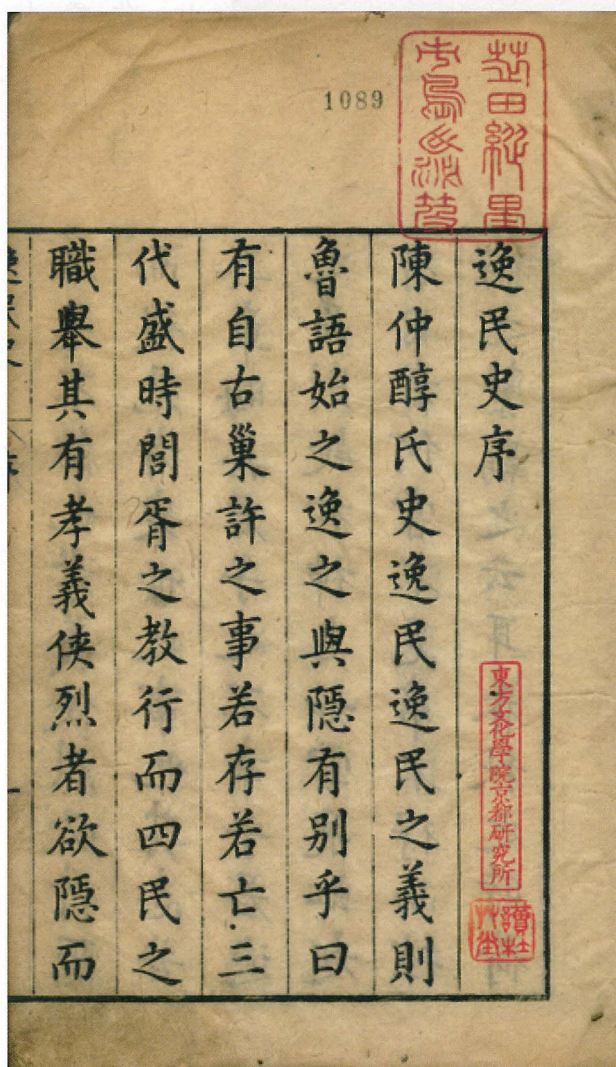 1089
逸民史序
陳仲醇氏史逸民逸民之義則
魯語始之逸之與隱有別乎曰
有自古巢許之事若存若亡三
代盛時閭胥之教行而四民之
職舉其有孝義俠烈者欲隱而
東方文化學院京都研究所
讀杜艸堂